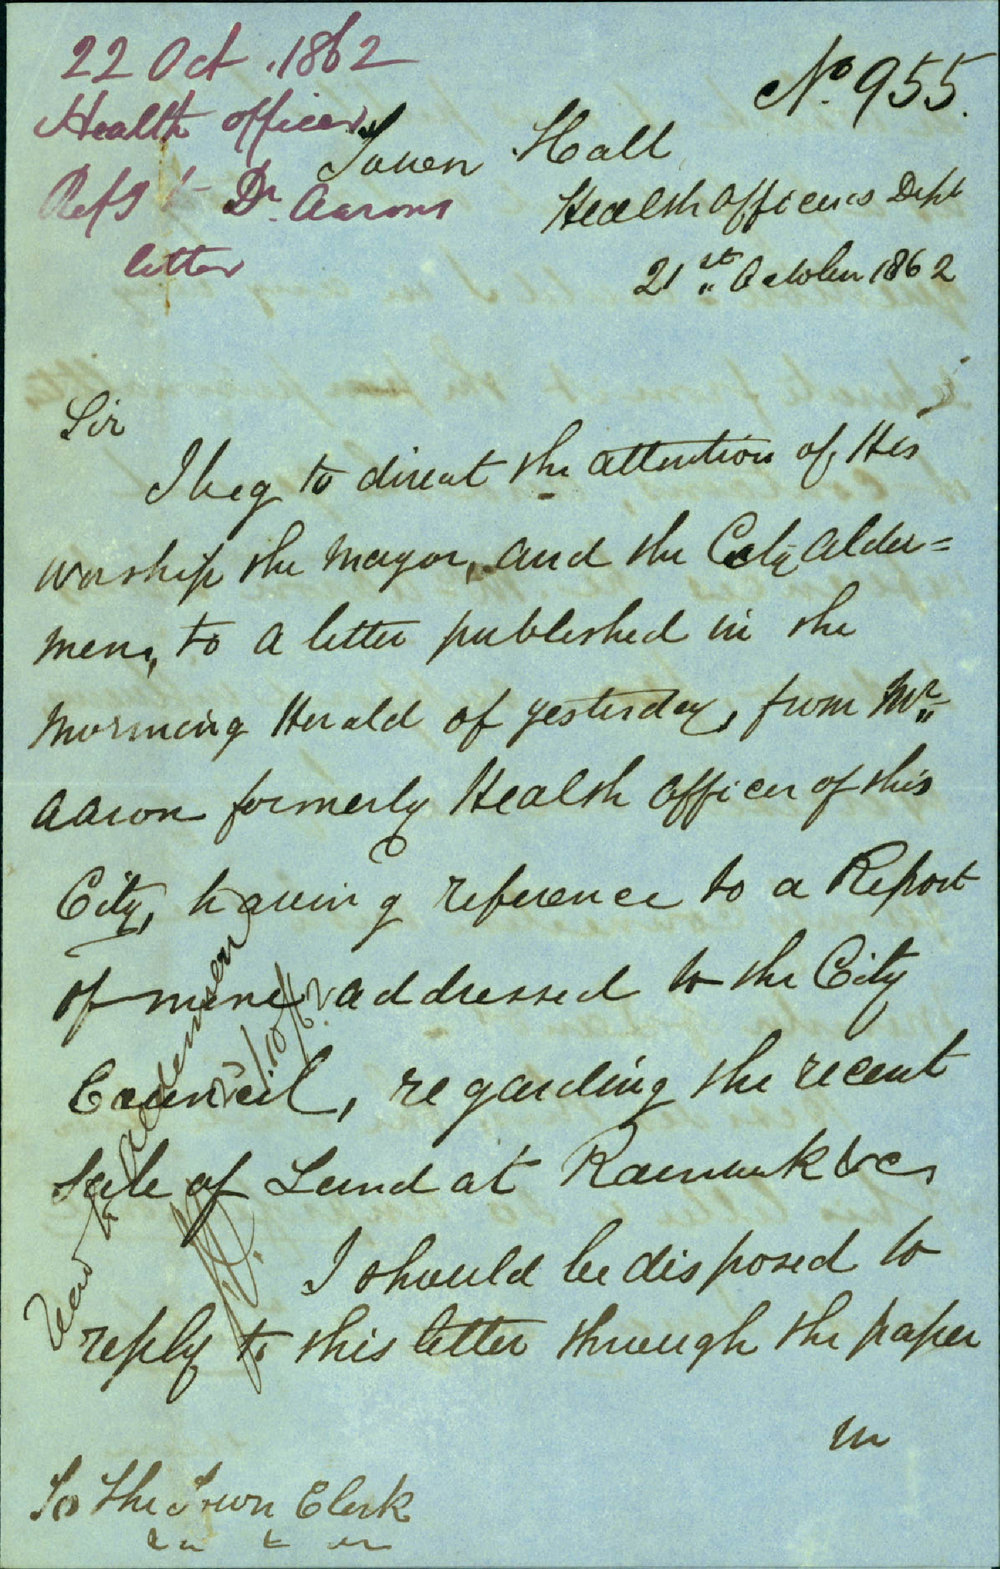 22 Oct. 1862
Health officer
Refg to Dr. Aarons
letter
No. 955.
Town Hall
Health Officers Dept
21st October 1862
Sir
I beg to direct the attention of His
Worship the Mayor, and the City Alder=
men, to a letter published in the
Morning Herald of yesterday, from Mr.
Aaron formerly Health Officer of this
City, having reference to a Report
of mine addressed to the City
Council, regarding the recent
Sale of Land at Randwick &c,
I should be disposed to
reply to this letter through the paper
in
To The Town Clerk
Read to Aldermen
/10/62